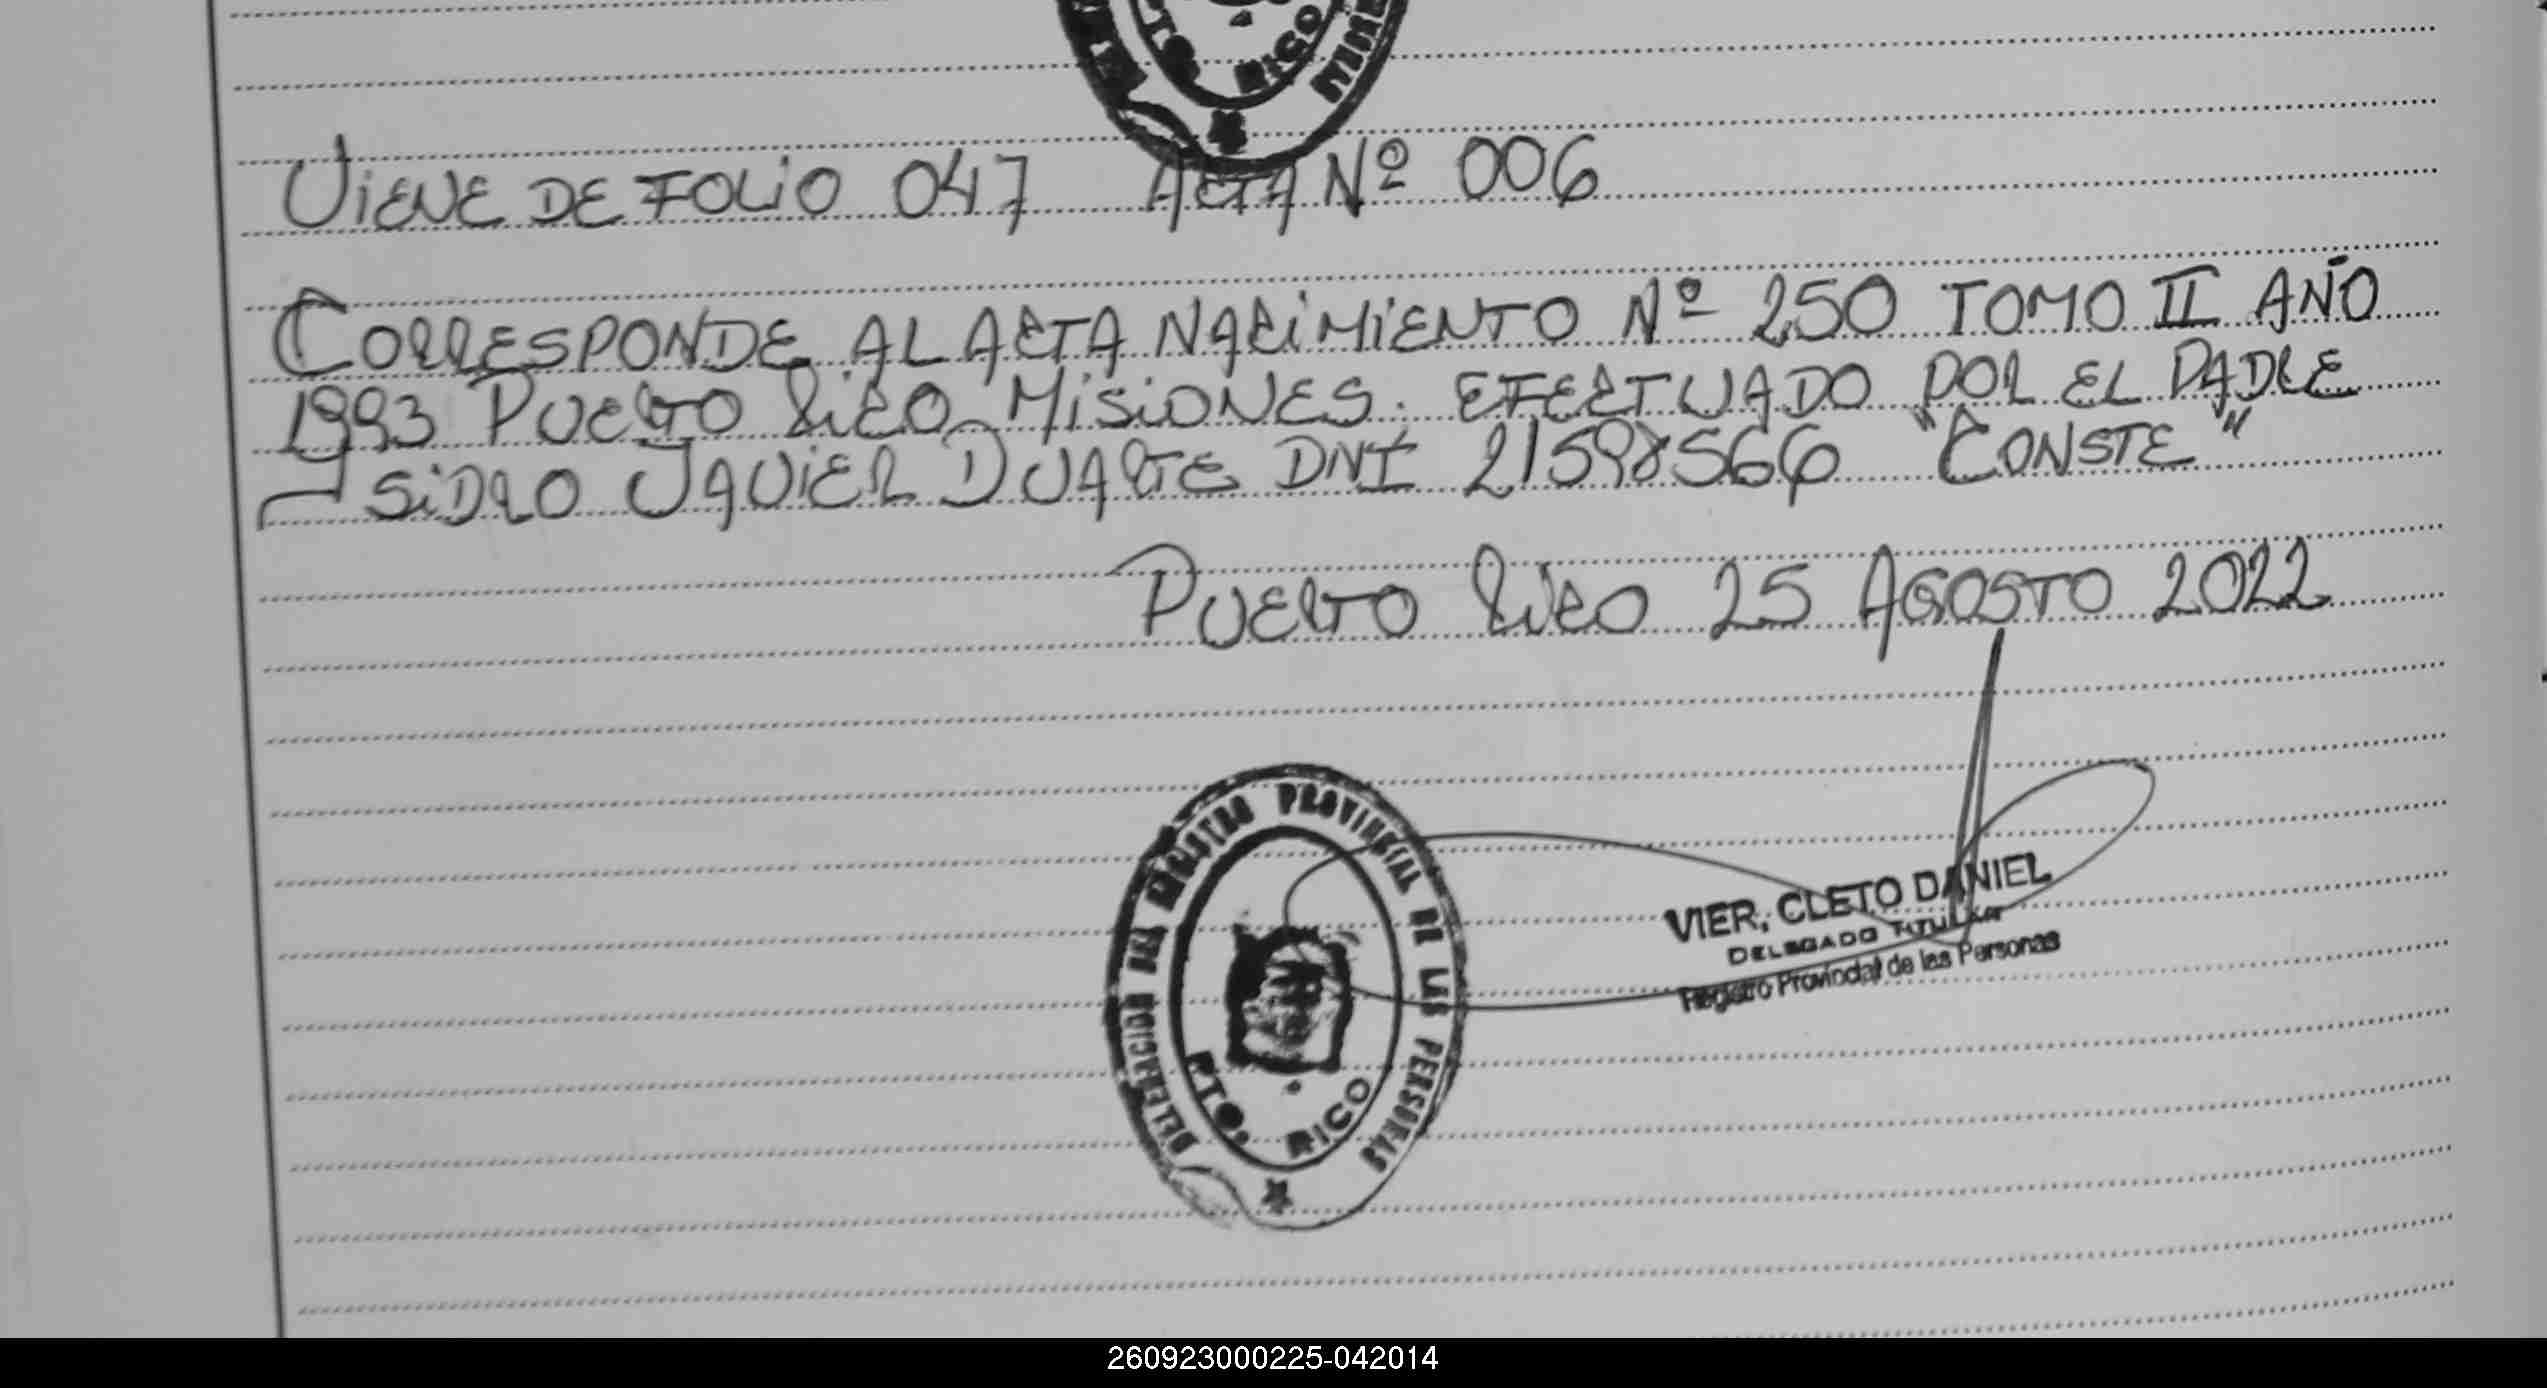 PTO. RICO
VIENE DE FOLIO 047 ACTA Nº 006
CORRESPONDE AL ACTA NACIMIENTO Nº 250 TOMO II AÑO
1993 PUERTO RICO MISIONES. EFECTUADO POR EL PADRE
ISIDRO JAVIER DUARTE DNI 21598566 "CONSTE"
PUERTO RICO 25 AGOSTO 2022
DELEGACION DEL REGISTRO PROVINCIAL DE LAS PERSONAS
PTO. RICO
VIER, CLETO DANIEL
DELEGADO TITULAR
Registro Provincial de las Personas
260923000225-042014